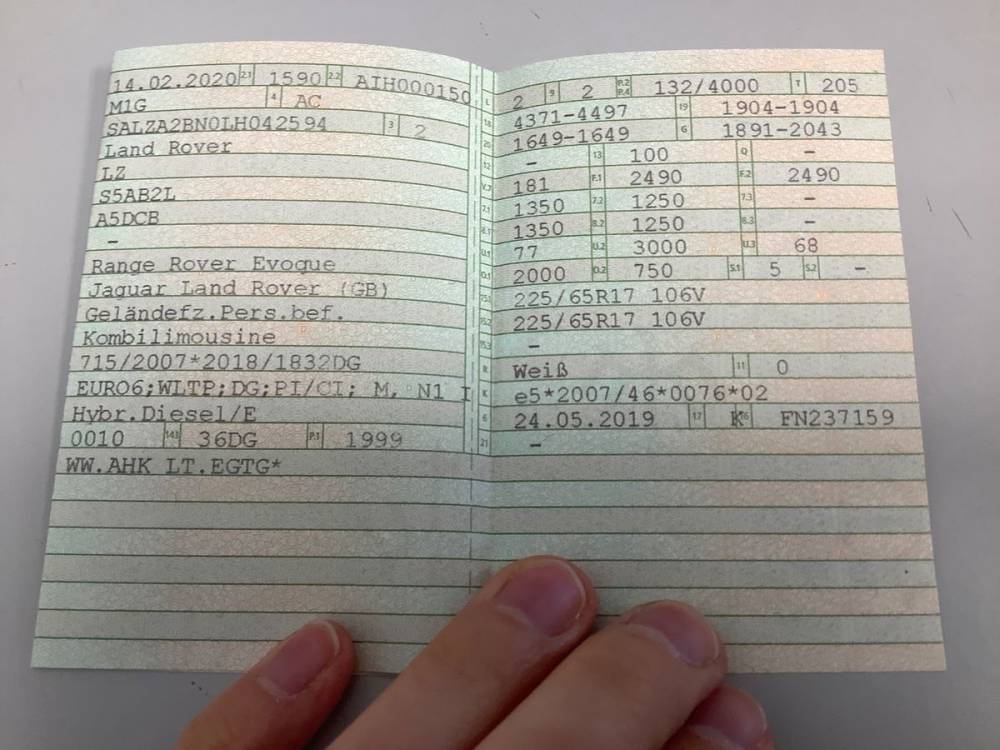 14.02.2020 2.1 1590 2.2 AIH000150
M1G 4 AC
SALZA2BN0LH042594 3 2
Land Rover
LZ
S5AB2L
A5DCB
–
Range Rover Evoque
Jaguar Land Rover (GB)
Geländefz.Pers.bef.
Kombilimousine
715/2007*2018/1832DG
EURO6;WLTP;DG;PI/CI; M, N1 I
Hybr.Diesel/E
0010 14.1 36DG P.1 1999
WW.AHK LT.EGTG*
L 2 9 2 P.2 P.4 132/4000 T 205
18 4371-4497 19 1904-1904
20 1649-1649 G 1891-2043
12 – 13 100 Q –
V.7 181 F.1 2490 F.2 2490
7.1 1350 7.2 1250 7.3 –
8.1 1350 8.2 1250 8.3 –
U.1 77 U.2 3000 U.3 68
O.1 2000 O.2 750 S.1 5 S.2 –
15.1 225/65R17 106V
15.2 225/65R17 106V
15.3 –
R Weiß 11 0
K e5*2007/46*0076*02
6 24.05.2019 17 K 16 FN237159
21 –